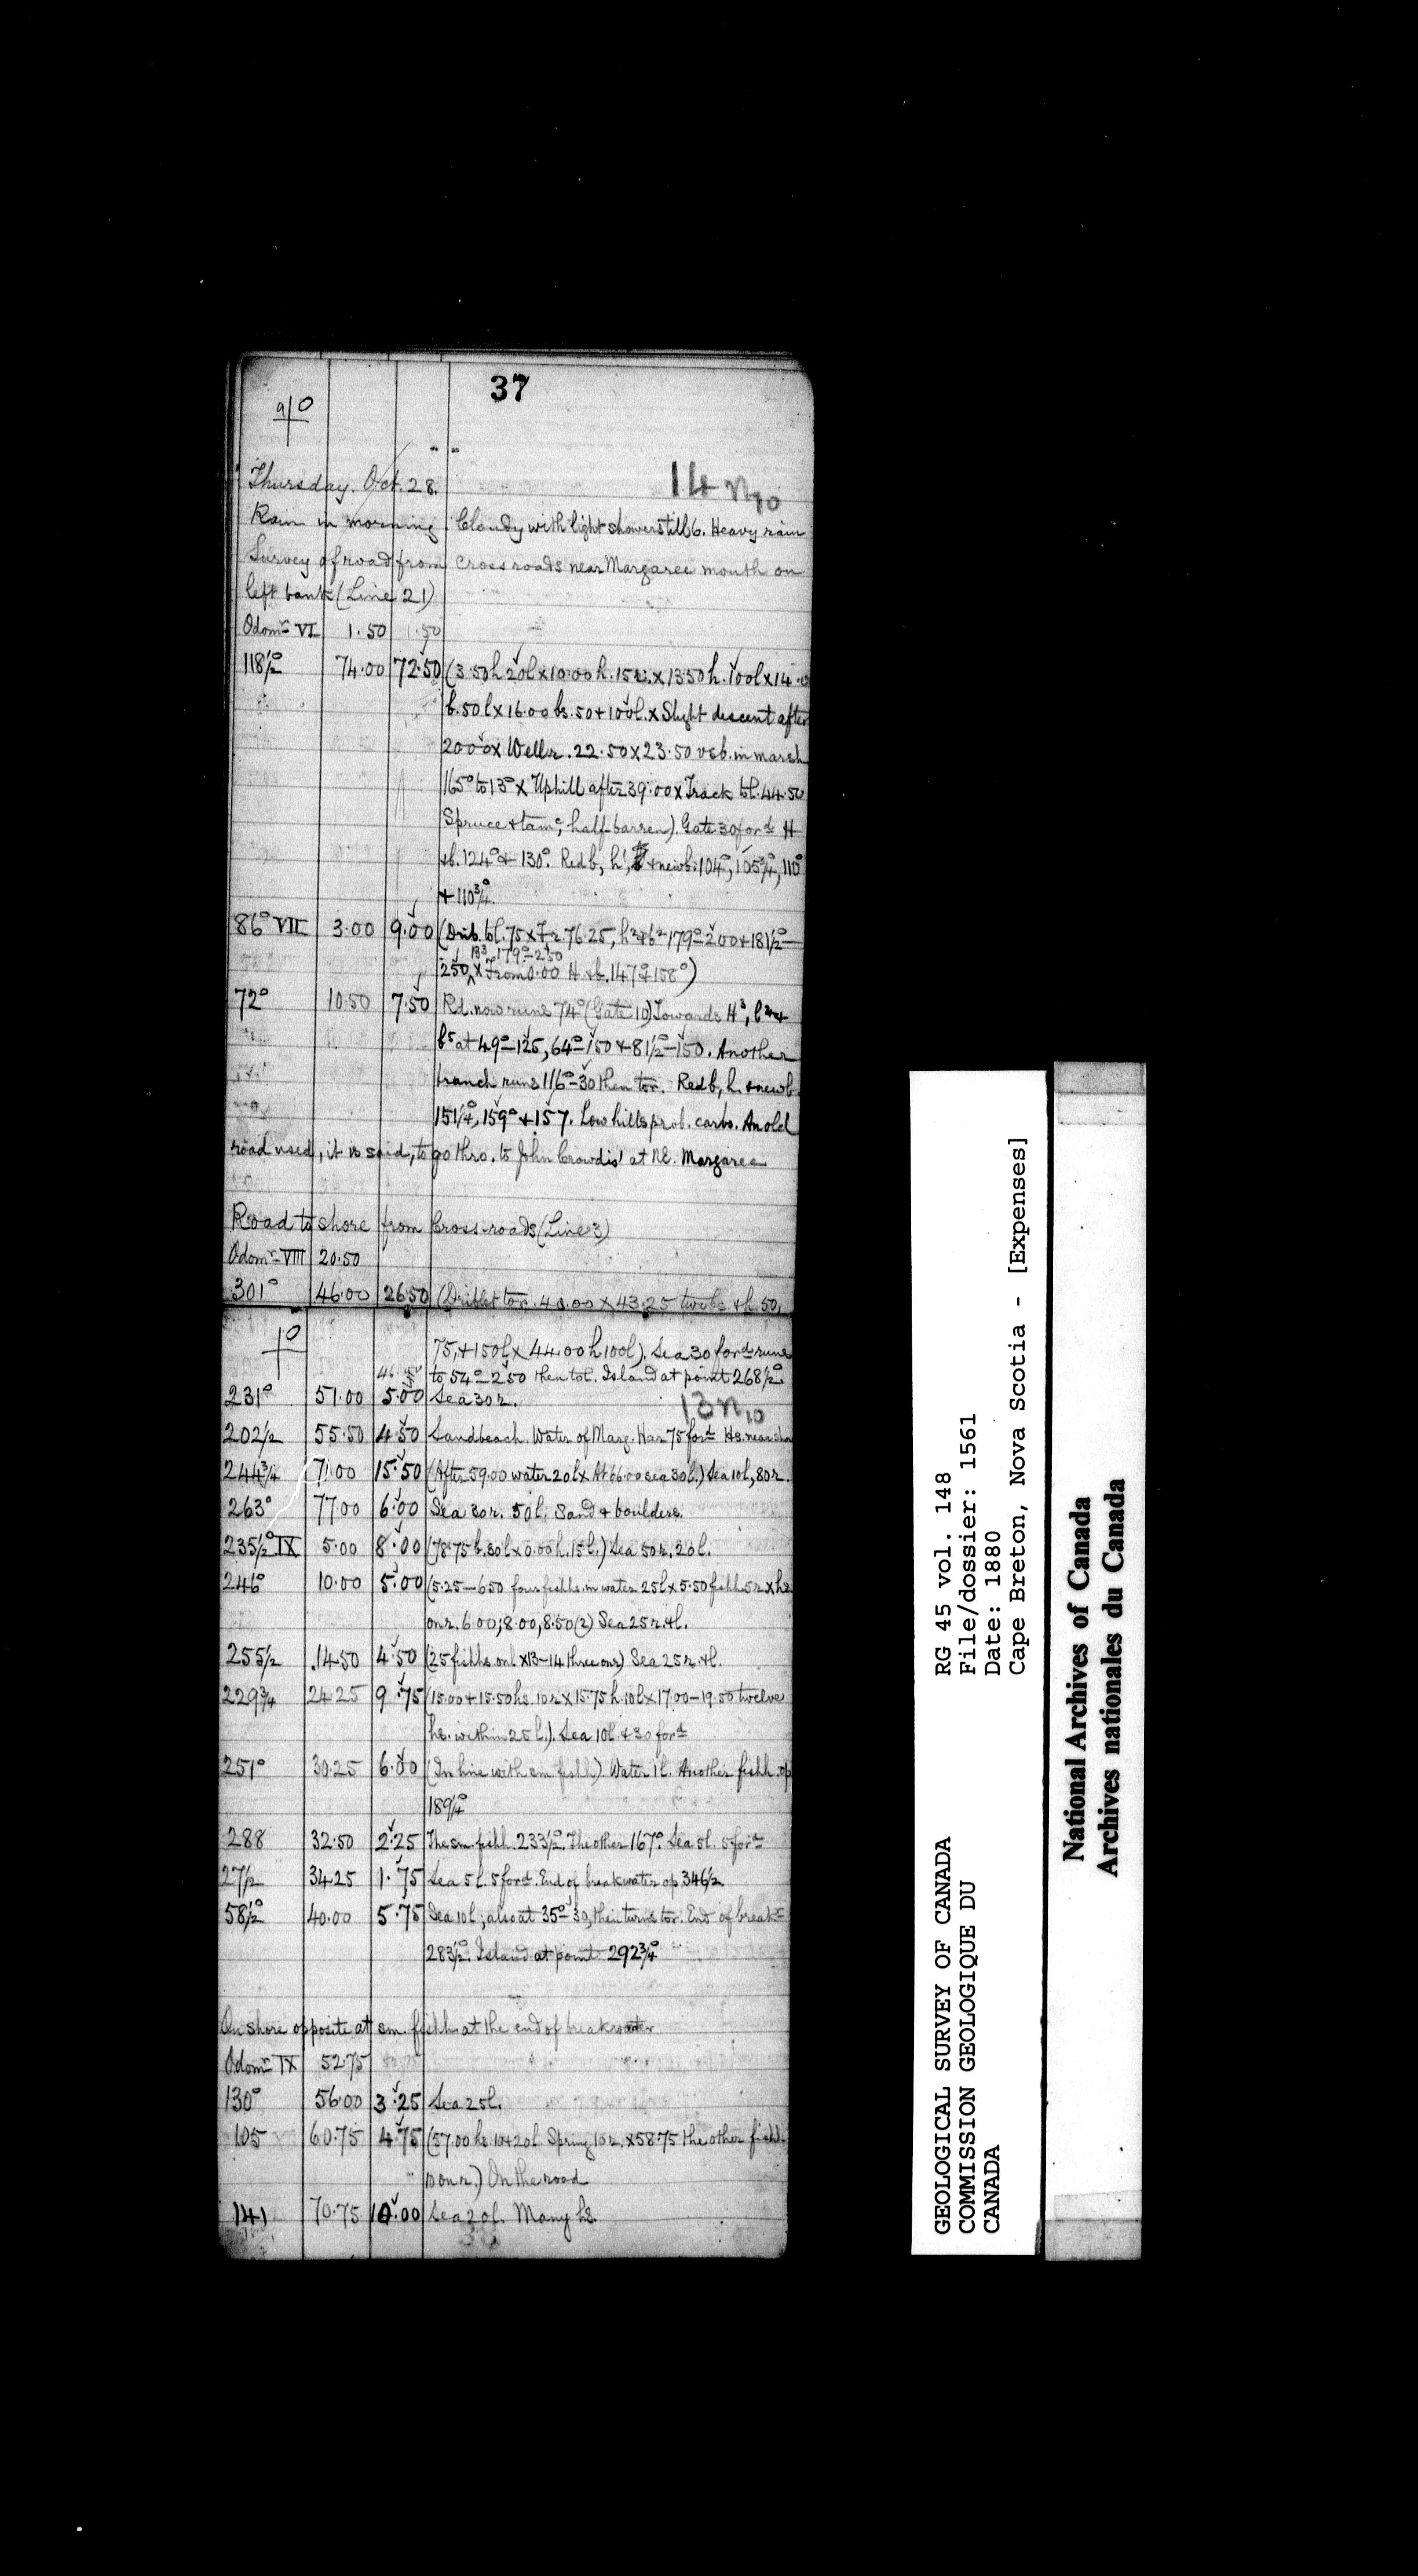 37
9|0
Thursday. Oct. 28.
14 n10
Rain in morning Cloudy with light showers till 6. Heavy rain
Survey of road from Cross roads near Margaree mouth on
left bank (Line 21)
Odomr VI 1.50 1.50
118½° 74.00 72.50 (3.50 h 20l x 10.00 h. 15r. x 13.50 h. 100l x 14.
b. 50l x 16.00 bs. 50 + 100l. x Slight descent after
20.00 x Well r. 22.50 x 23.50 in marsh
165° to 13° x Uphill after 39.00 x Track to l. 44.50
Spruce + tamc, half-barren). Gate 30 ford H
+b. 124° + 130°. Red b, h', + new b. 104°, 105¾°, 110°
+ 110¾°.
86° VII 3.00 9.00 (to l. 75 x 76.25, h2 + b2 179° - 200 + 181½° -
B3, 179° - 250
250 x From 0.00 H + b. 147° + 158°)
72° 10.50 7.50 Rd. now runs 74° (Gate 10) Towards H3,
b5 at 49° - 125, 64° - 150 + 81½° - 150. Another
branch runs 116° - 30 then to r. Red b, h. + new b.
151¼°, 159° + 157. Low hills prob. carbs. An old
road used, it is said, to go thro. to John Crowdis' at N.E. Margaree
Road to shore from Cross-roads (Line 3)
Odomr VIII 20.50
301° 46.00 26.50 (to r. 40.00 x 43.25 two bs + h. 50,
|0
75, + 150l x 44.00 h 100l). Sea 30 ford runs
to 54° - 250 then to l. Island at point 268½°
231° 51.00 5.00 Sea 30 r.
13 n10
202½ 55.50 4.50 Sandbeach. Water of Marg. Har 75 ford Hs. near shore
244¾ 71.00 15.50 (After 59.00 water 20l x At 66.00 sea 30l.) Sea 10l, 80r.
263° 77.00 6.00 Sea 30r. 50l. Sand + boulders.
235½° IX 5.00 8.00 (78.75 b. 30l x 0.00 h. 15l.) Sea 50r. 20l.
246° 10.00 5.00 (5.25 - 6.50 four fishhs. in water 25l x 5.50 fishh. 5r x hs.
on r. 6.00; 8.00, 8.50 (2) Sea 25r. + l.
255½ 14.50 4.50 (25 fishhs. on l. x 13 - 14 three on r) Sea 25r. + l.
229¾ 24.25 9.75 (15.00 + 15.50 hs. 10r x 15.75 h. 10l x 17.00 - 19.50 twelve
hs. within 25l.). Sea 10l. + 30 ford
251° 30.25 6.00 (In line with sm. fishh). Water 1l. Another fishh. op
189¼°
288 32.50 2.25 The sm. fishh. 233½°. The other 167°. Sea 5l. 5 ford
27½ 34.25 1.75 Sea 5l. 5 ford. End of breakwater op 346½
58½° 40.00 5.75 Sea 10l; also at 35° - 30, then turns to r. End of breakr
283½°. Island at point 292¾°
On shore opposite at sm. fishh. at the end of breakwater
Odomr IX 52.75
130° 56.00 3.25 Sea 25l.
105 60.75 4.75 (57.00 hs. 10 + 20l. Spring 10r. x 58.75 the other fishh.
10 on r.) On the road
141 70.75 10.00 Sea 20l. Many hs.
38
GEOLOGICAL SURVEY OF CANADA
COMMISSION GEOLOGIQUE DU
CANADA
RG 45 vol. 148
File/dossier: 1561
Date: 1880
Cape Breton, Nova Scotia - [Expenses]
National Archives of Canada
Archives nationales du Canada